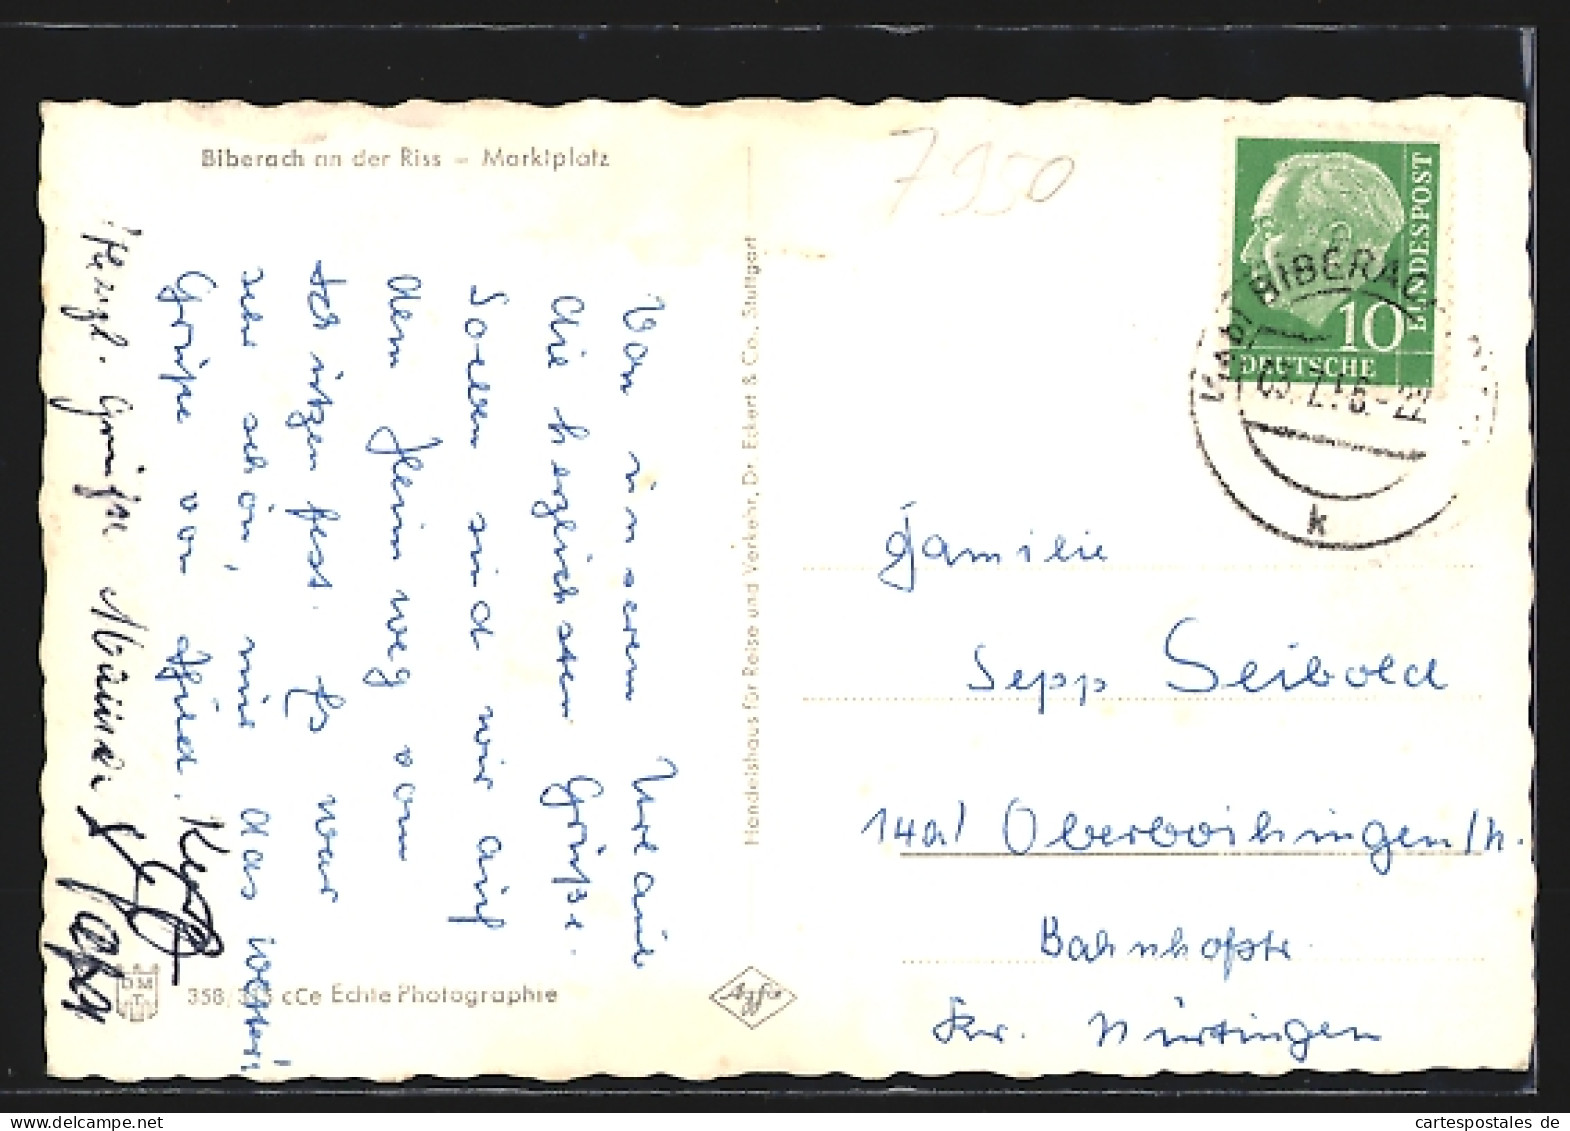 Biberach an der Riss – Marktplatz
7950
BUNDESPOST
10
DEUTSCHE
BIBERACH
k
Von unserem Urlaub
die herzlichsten Grüße.
Soeben sind wir auf
dem Heimweg vom
sitzen fest. Es war
sehr schön, nur das Wetter!
Grüße von
Herzl. Grüße
Handelshaus für Reise und Verkehr, Dr. Eckert & Co., Stuttgart
Familie
Sepp Seibold
14a/ Oberboihingen/N.
Bahnhofstr.
Kr. Nürtingen
DMT
cCe Echte Photographie
Agfa
cartespostales de